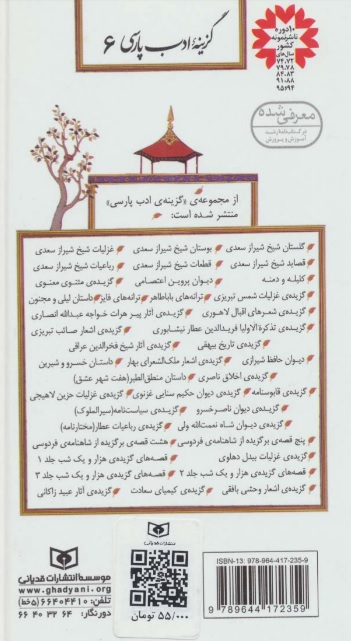 گزینهٔ ادب پارسی ۶
۱۰ دوره
ناشر نمونه
کشور
سال‌های
۷۴،۷۲
۷۹،۷۸
۸۴،۸۳
۹۱،۸۸
۹۵،۹۴
معرفی شده
در کتابنامه رشد
آموزش و پرورش
از مجموعه‌ی «گزینه‌ی ادب پارسی»
منتشر شده است:
گلستان شیخ شیراز سعدی بوستان شیخ شیراز سعدی غزلیات شیخ شیراز سعدی
قصاید شیخ شیراز سعدی قطعات شیخ شیراز سعدی رباعیات شیخ شیراز سعدی
کلیله و دمنه دیوان پروین اعتصامی گزیده‌ی مثنوی معنوی
گزیده‌ی غزلیات شمس تبریزی ترانه‌های باباطاهر ترانه‌های فایز داستان لیلی و مجنون
گزیده‌ی شعرهای اقبال لاهوری گزیده‌ی آثار پیر هرات خواجه عبدالله انصاری
گزیده‌ی تذکرة الاولیا فریدالدین عطار نیشابوری گزیده‌ی اشعار صائب تبریزی
گزیده‌ی تاریخ بیهقی گزیده‌ی آثار شیخ فخرالدین عراقی
دیوان حافظ شیرازی گزیده‌ی اشعار ملک‌الشعرای بهار داستان خسرو و شیرین
گزیده‌ی اخلاق ناصری داستان منطق‌الطیر(هفت شهر عشق)
گزیده‌ی قابوسنامه گزیده‌ی دیوان حکیم سنایی غزنوی گزیده‌ی غزلیات حزین لاهیجی
گزیده‌ی دیوان ناصرخسرو گزیده‌ی سیاست‌نامه(سیرالملوک)
گزیده‌ی دیوان شاه نعمت‌الله ولی گزیده‌ی رباعیات عطار(مختارنامه)
پنج قصه‌ی برگزیده از شاهنامه‌ی فردوسی هشت قصه‌ی برگزیده از شاهنامه‌ی فردوسی
گزیده‌ی غزلیات بیدل دهلوی قصه‌های گزیده‌ی هزار و یک شب جلد ۱
قصه‌های گزیده‌ی هزار و یک شب جلد ۲ قصه‌های گزیده‌ی هزار و یک شب جلد ۳
گزیده‌ی اشعار وحشی بافقی گزیده‌ی کیمیای سعادت گزیده‌ی آثار عبید زاکانی
موسسه انتشارات قدیانی
www.ghadyani.org
تلفن: ۶۶۴۰۴۴۱۰ (۵ خط)
دورنگار: ۶۶۴۰۳۲۶۴
انتشارات قدیانی
۵۵/۰۰۰ تومان
ISBN-13: 978-964-417-235-9
9 789644 172359